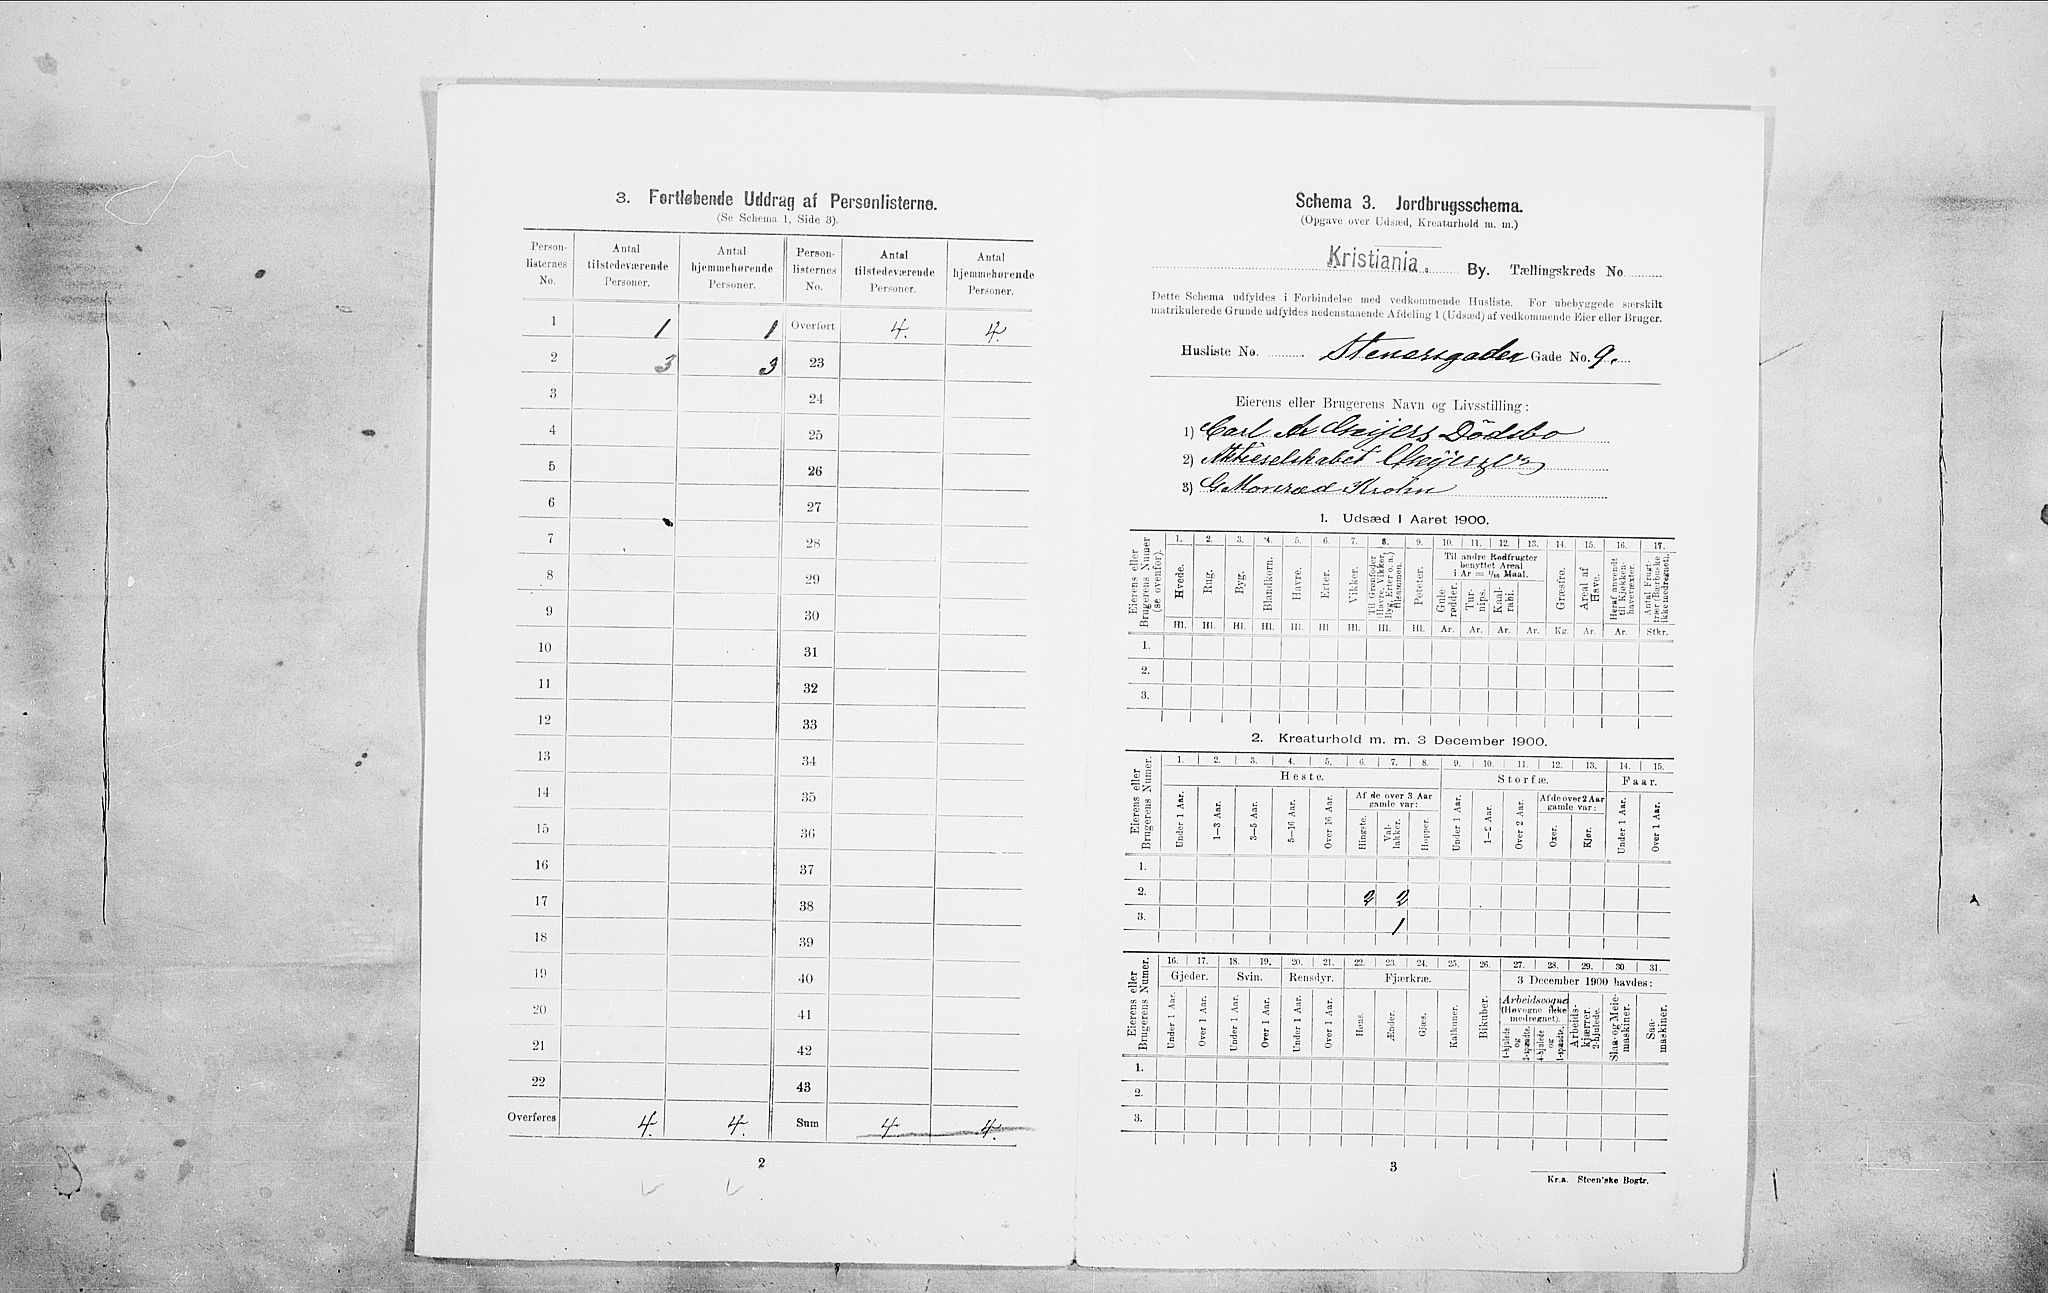 3. Fortløbende Uddrag af Personlisterne.
(Se Schema 1, Side 3).
Person-listernes No. | Antal tilstedeværende Personer. | Antal hjemmehørende Personer. | Person-listernes No. | Antal tilstedeværende Personer. | Antal hjemmehørende Personer.
1 | 1 | 1 | Overført | 4. | 4.
2 | 3 | 3 | 23
3 | 24
4 | 25
5 | 26
6 | 27
7 | 28
8 | 29
9 | 30
10 | 31
11 | 32
12 | 33
13 | 34
14 | 35
15 | 36
16 | 37
17 | 38
18 | 39
19 | 40
20 | 41
21 | 42
22 | 43
Overføres | 4. | 4. | Sum | 4. | 4.
2
Schema 3. Jordbrugsschema.
(Opgave over Udsæd, Kreaturhold m. m.)
Kristiania. By. Tællingskreds No
Dette Schema udfyldes i Forbindelse med vedkommende Husliste. For ubebyggede særskilt
matrikulerede Grunde udfyldes nedenstaaende Afdeling 1 (Udsæd) af vedkommende Eier eller Bruger.
Husliste No. Stenersgaden Gade No. 9.
Eierens eller Brugerens Navn og Livsstilling:
1) Carl Gheijers Dödsbo
2) Aktieselskabet
3) G Monrad Krohn
1. Udsæd i Aaret 1900.
Eierens eller Brugerens Numer (se ovenfor).
1. 2. 3. 4. 5. 6. 7. 8. 9. 10. 11. 12. 13. 14. 15. 16. 17.
Hvede. Rug. Byg. Blandkorn. Havre. Erter. Vikker. Til Grønfoder (Havre, Vikker, Byg, Erter o. a.) tilsammen. Poteter.
Til andre Rodfrugter benyttet Areal i Ar = 1/10 Maal.
Gule-rødder. Tur-nips. Kaal-rabi. Græsfrø. Areal af Have. Heraf anvendt til Kjøkken-havevæxter. Antal Frugt-træer (Bærbuske ikke medregnet).
Hl. Hl. Hl. Hl. Hl. Hl. Hl. Hl. Hl. Ar. Ar. Ar. Ar. Kg. Ar. Ar. Stkr.
1.
2.
3.
2. Kreaturhold m. m. 3 December 1900.
Eierens eller Brugerens Numer.
1. 2. 3. 4. 5. 6. 7. 8. 9. 10. 11. 12. 13. 14. 15.
Heste. Storfæ. Faar.
Under 1 Aar. 1—3 Aar. 3—5 Aar. 5—16 Aar. Over 16 Aar. Af de over 3 Aar gamle var: Hingste. Val-lakker. Hopper. Under 1 Aar. 1—2 Aar. Over 2 Aar. Af de over 2 Aar gamle var: Oxer. Kjør. Under 1 Aar. Over 1 Aar.
1.
2. 2 2
3. 1
Eierens eller Brugerens Numer.
16. 17. 18. 19. 20. 21. 22. 23. 24. 25. 26. 27. 28. 29. 30 31.
Gjeder. Svin. Rensdyr. Fjærkræ. Bikuber. 3 December 1900 havdes:
Under 1 Aar. Over 1 Aar. Under 1 Aar. Over 1 Aar. Under 1 Aar. Over 1 Aar. Høns. Ænder. Gjæs. Kalkuner. Arbeidsvogne (Høvogne ikke medregnet). 4-hjulede og 2-spændte. 4-hjulede og 1-spændte. Arbeids-kjærrer, 2-hjulede. Slaa- og Meie-maskiner. Saa-maskiner.
1.
2.
3.
3
Kr.a. Steen'ske Bogtr.